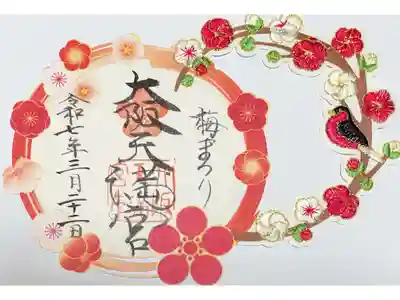 梅まつり
大阪天満宮
令和七年二月二十一日